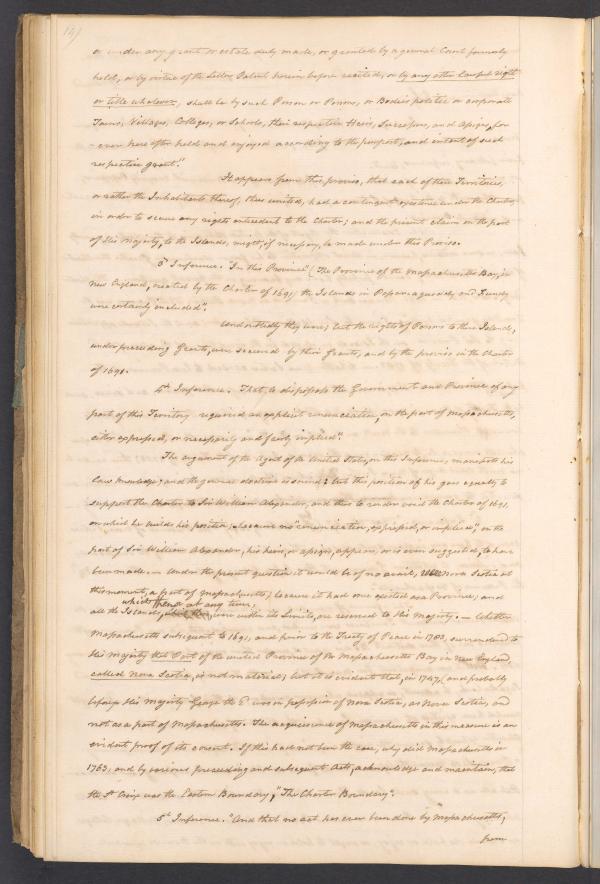 or under any grant or estate duly made, or granted by a general Court formerly
held, or by virtue of the Letters Patent herein before recited, or by any other lawful right
or title whatever, shall be by such Person or Persons, or Bodies politic or corporate
Towns, Villages, Colleges, or Schools, their respective Heirs, Successors, and Assigns, for
-ever here after held and enjoyed according to the purport, and intent of such
respective grant."
It appears from this proviso, that each of these Territories,
or rather the Inhabitants thereof, thus united, had a contingent existence under the Charter,
in order to secure any rights antecedent to the Charter; and the present claim on the part
of His Majesty, to the Islands, might, if necessary, be made under this Proviso.
3d Inference. "In this Province" (The Province of the Massachusetts Bay, in
New England, created by the Charter of 1691) the Islands in Passamaquoddy and Fundy
were certainly included".
Undoubtedly they were; but the rights of Persons to these Islands,
under preceding Grants, were secured by their Grants, and by the proviso in the Charter
of 1691.
4th Inference. That, to dispossess the Government and Province of any
part of this Territory required an explicit renunciation, on the part of Massachusetts,
either expressed, or necessarily and fairly implied".
The argument of the Agent of the United States, on this Inference, manifests his
Law knowledge; and the general doctrine is sound: but this position of his goes equally to
support the Charter to Sir William Alexander, and thus to render void the Charter of 1691,
on which he builds his position; because no "renunciation, expressed, or implied", on the
part of Sir William Alexander, his heirs, or assigns, appears, or is even suggested, to have
been made. — Under the present question it would be of no avail, were Nova Scotia at
this moment, a part of Massachusetts; because it had once existed as a Province; and
which were at any time,
all the Islands, within its Limits, are reserved to His Majesty. — Whether
Massachusetts subsequent to 1691, and prior to the Treaty of Peace in 1783, surrendered to
His Majesty that Part of the united Province of the Massachusetts Bay in New England,
called Nova Scotia, is not material; but it is evident that, in 1747, (and probably
before) His Majesty George the 2d was in possession of Nova Scotia, as Nova Scotia, and
not as a part of Massachusetts. The acquiescence of Massachusetts in this measure is an
evident proof of its consent. If this had not been the case, why did Massachusetts in
1763, and by various preceding and subsequent Acts, acknowledge and maintain, that
the St Croix was the Eastern Boundary; "The Charter Boundary".
5th Inference. "And that no act has ever been done by Massachusetts,
from